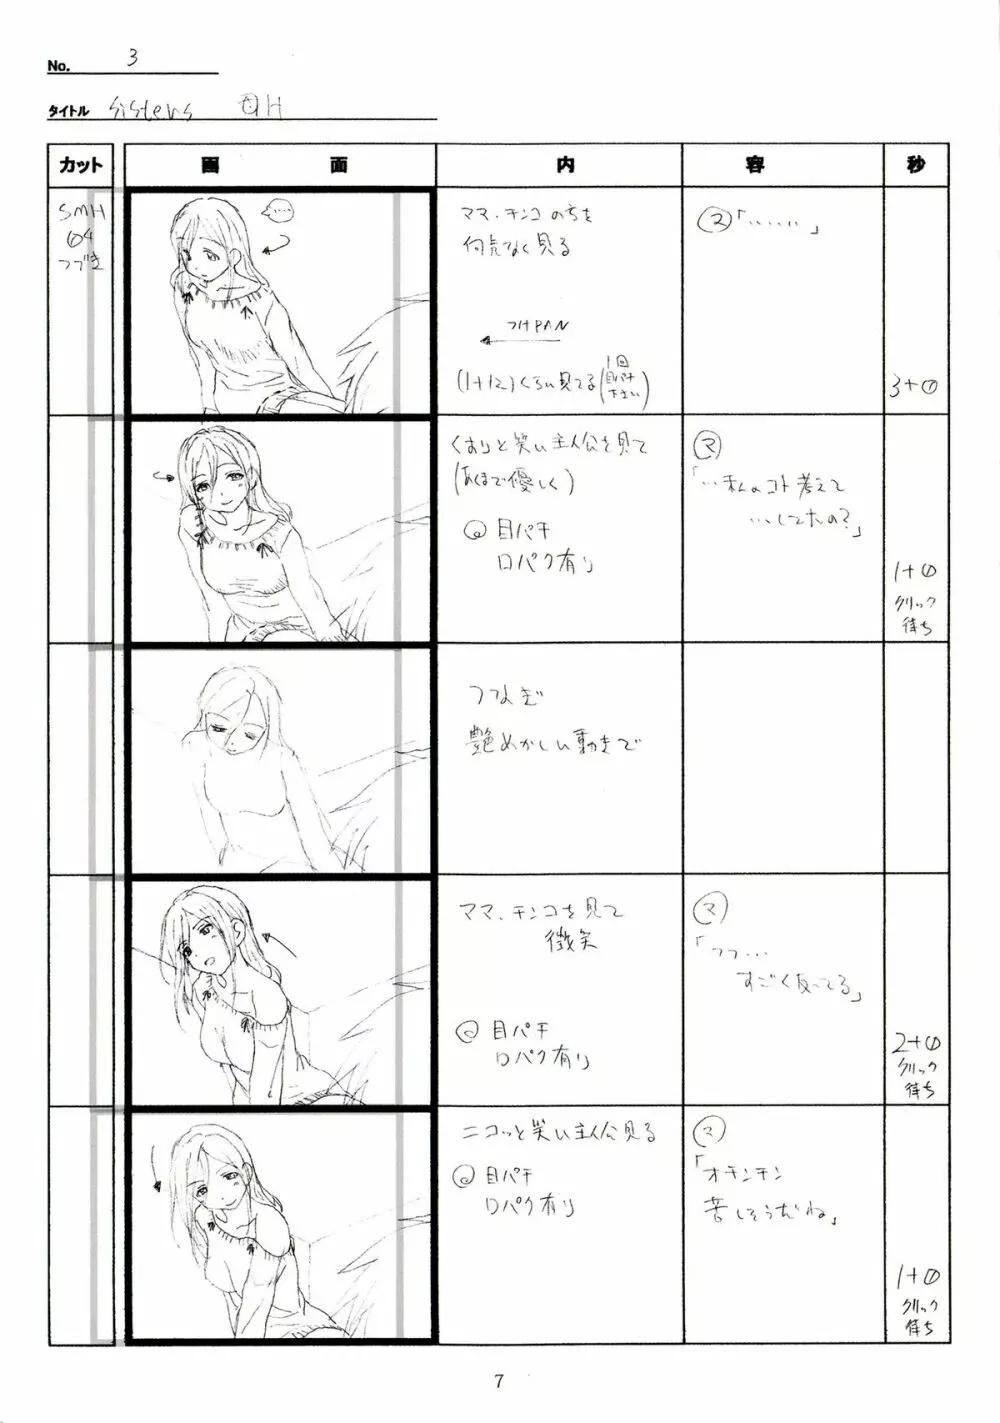 No. 3
タイトル sisters 母H
カット 画 面 内 容 秒
SMH
04
つづき
ママ、チンコの方を
何気なく見る
フォPAN
(1+12)くらい見てる(1回目パチ下さい)
マ「……」
3+0
くすりと笑い主人公を見て
(あくまで優しく)
目パチ
口パク有り
マ
「…私のコト考えて
…してたの?」
1+0
クリック
待ち
つなぎ
艶めかしい動きで
ママ、チンコを見て
微笑
目パチ
口パク有り
マ
「フフ…
すごく反ってる」
2+0
クリック
待ち
ニコッと笑い主人公見る
目パチ
口パク有り
マ
「オチンチン
苦しそうだね」
1+0
クリック
待ち
7